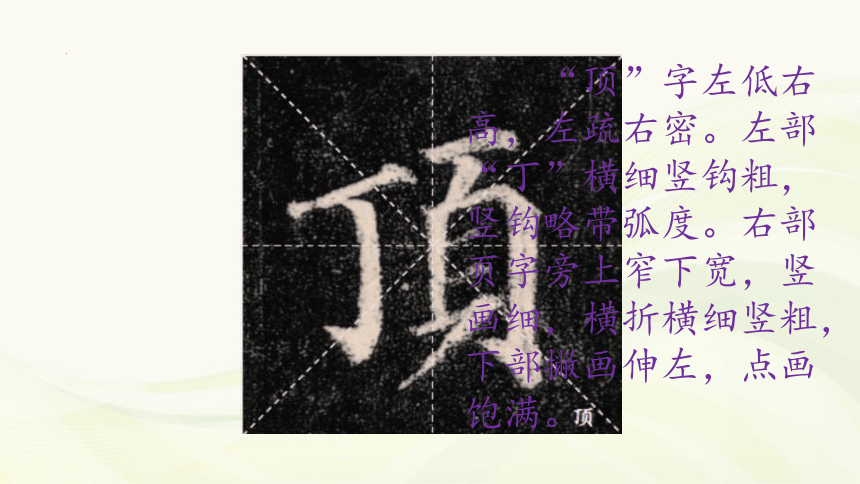 “顶”字左低右
高，左疏右密。左部
“丁”横细竖钩粗，
竖钩略带弧度。右部
页字旁上窄下宽，竖
画细，横折横细竖粗，
下部撇画伸左，点画
饱满。
頂
顶